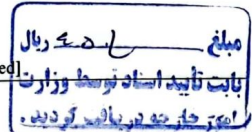 مبلغ ریال
بابت تأیید اسناد توسط وزارت
امور خارجه دریافت گردید.
ed]